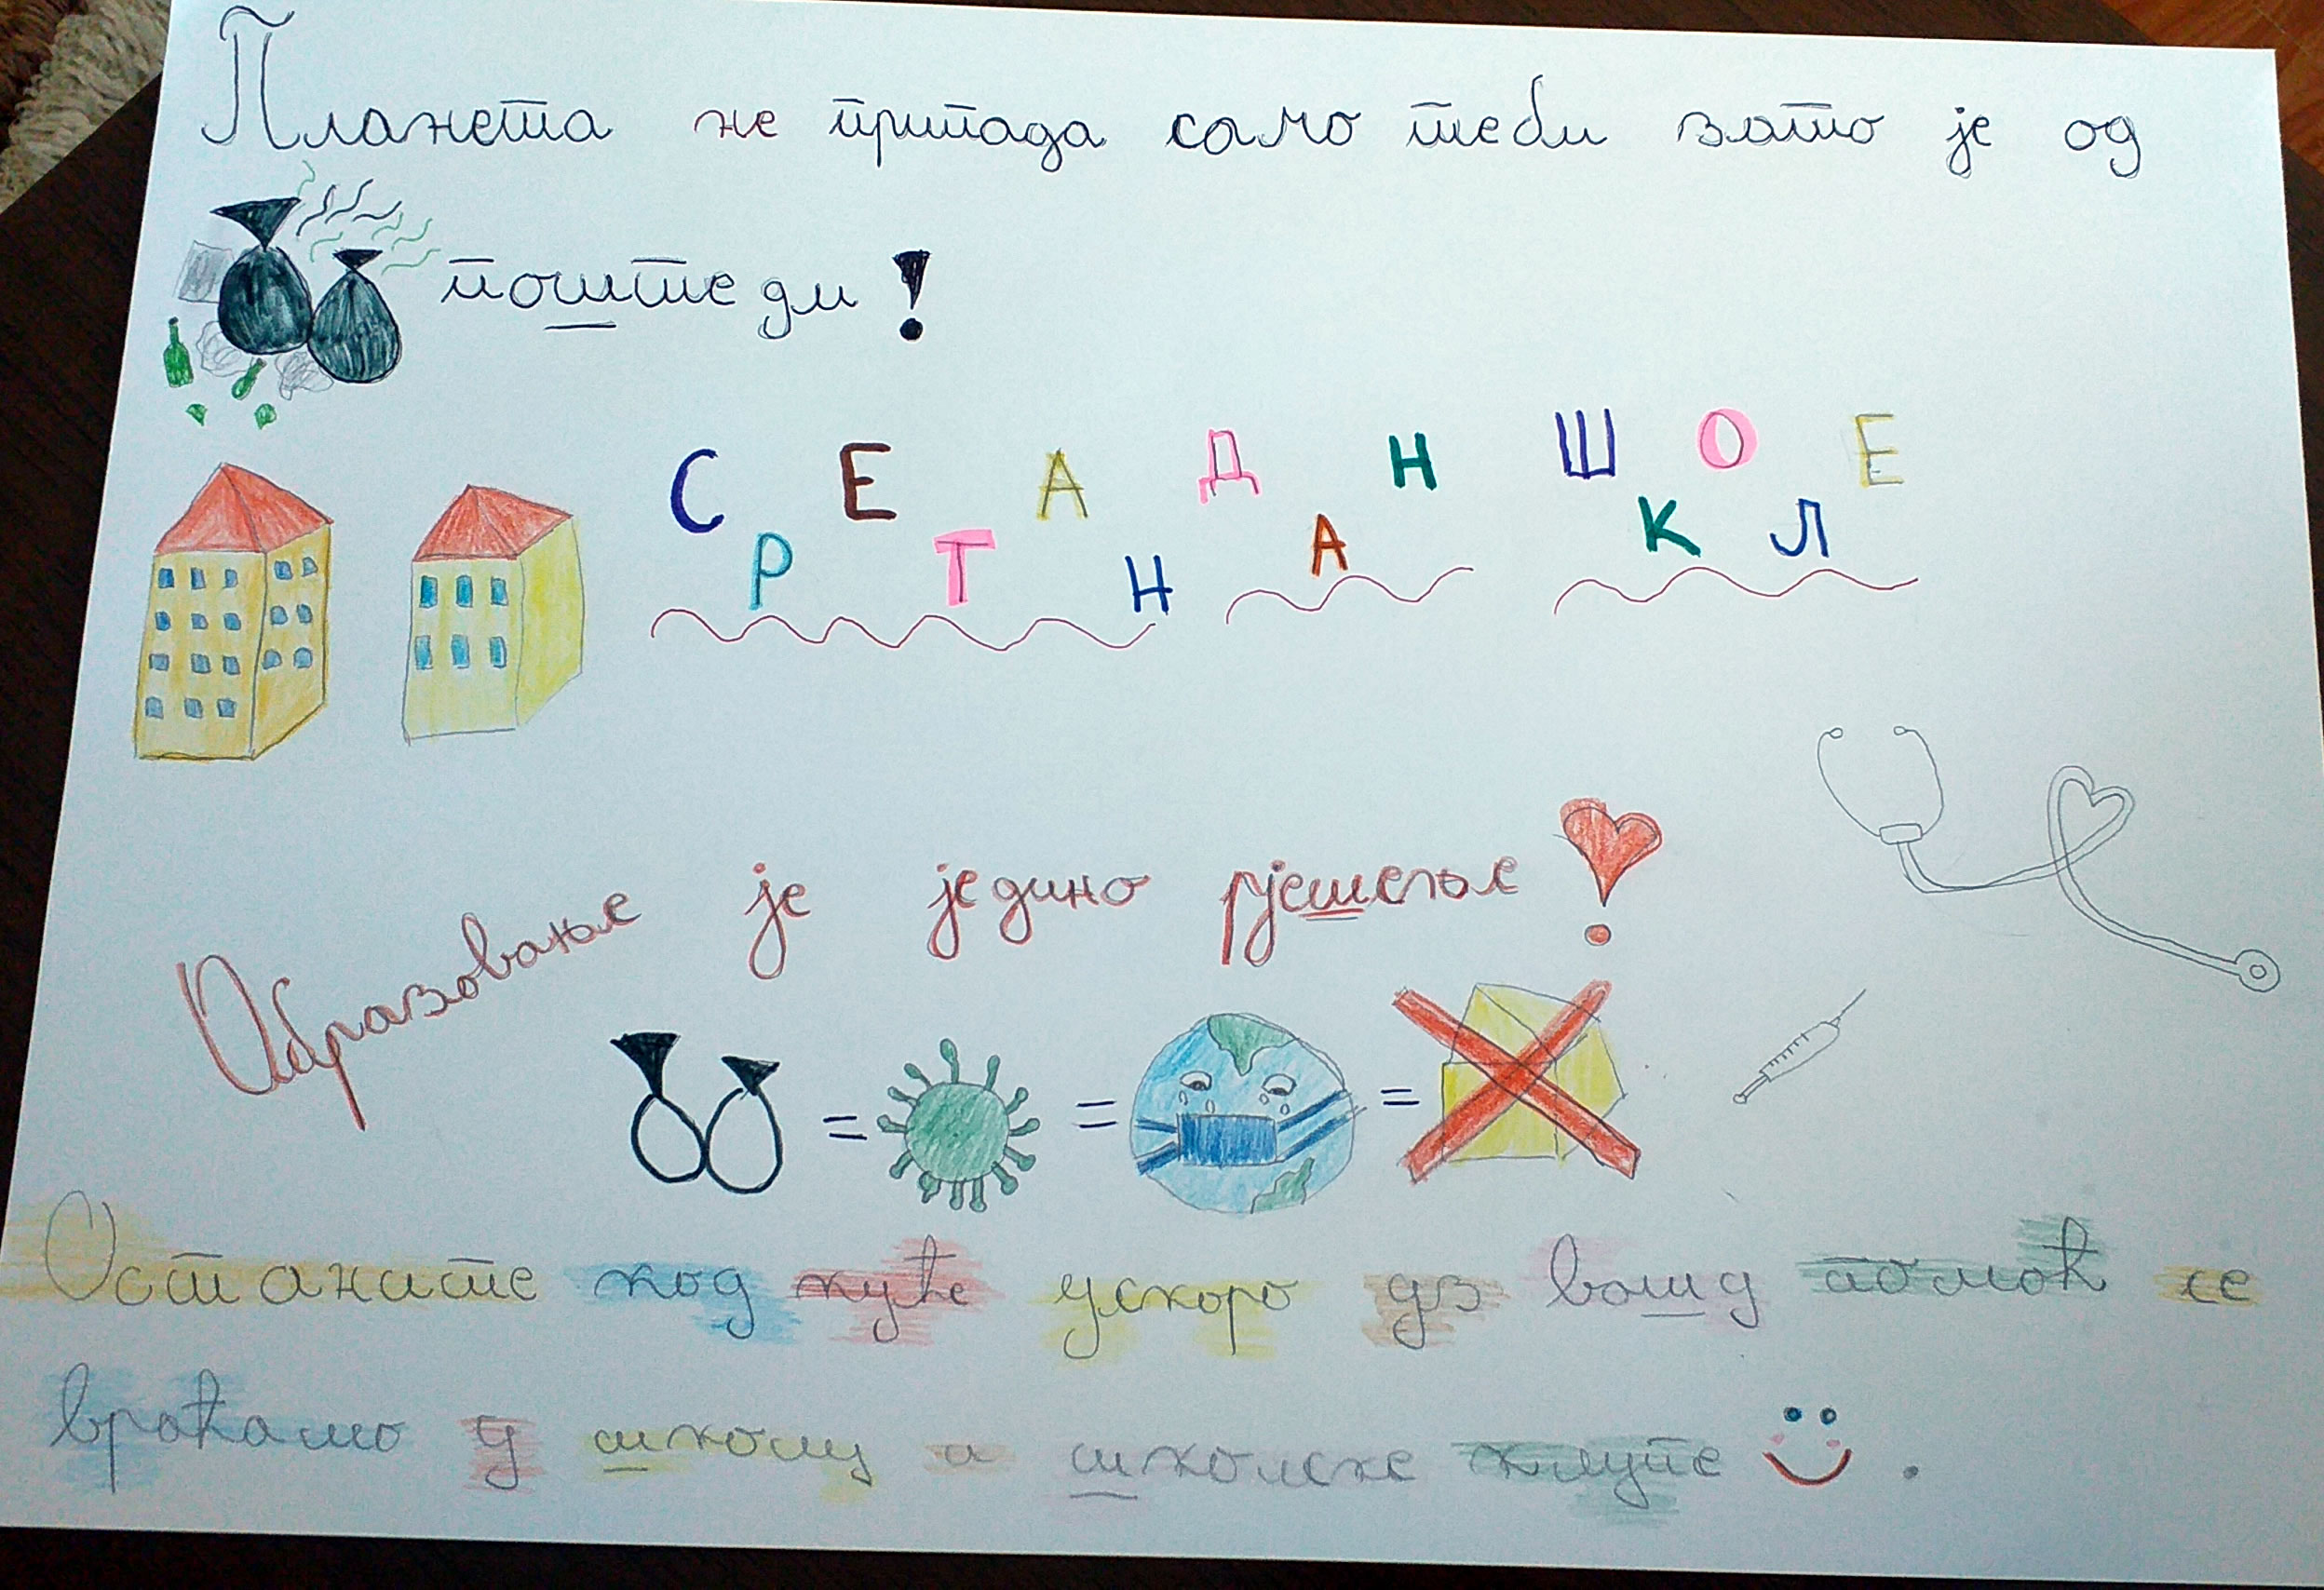 Планета не припада само теби зато је од
поштеди!
СРЕТАН ДАН ШКОЛЕ
Образовање је једино рјешење!
= = =
Останите код куће ускоро уз вашу помоћ се
враћамо у школу и школске клупе.